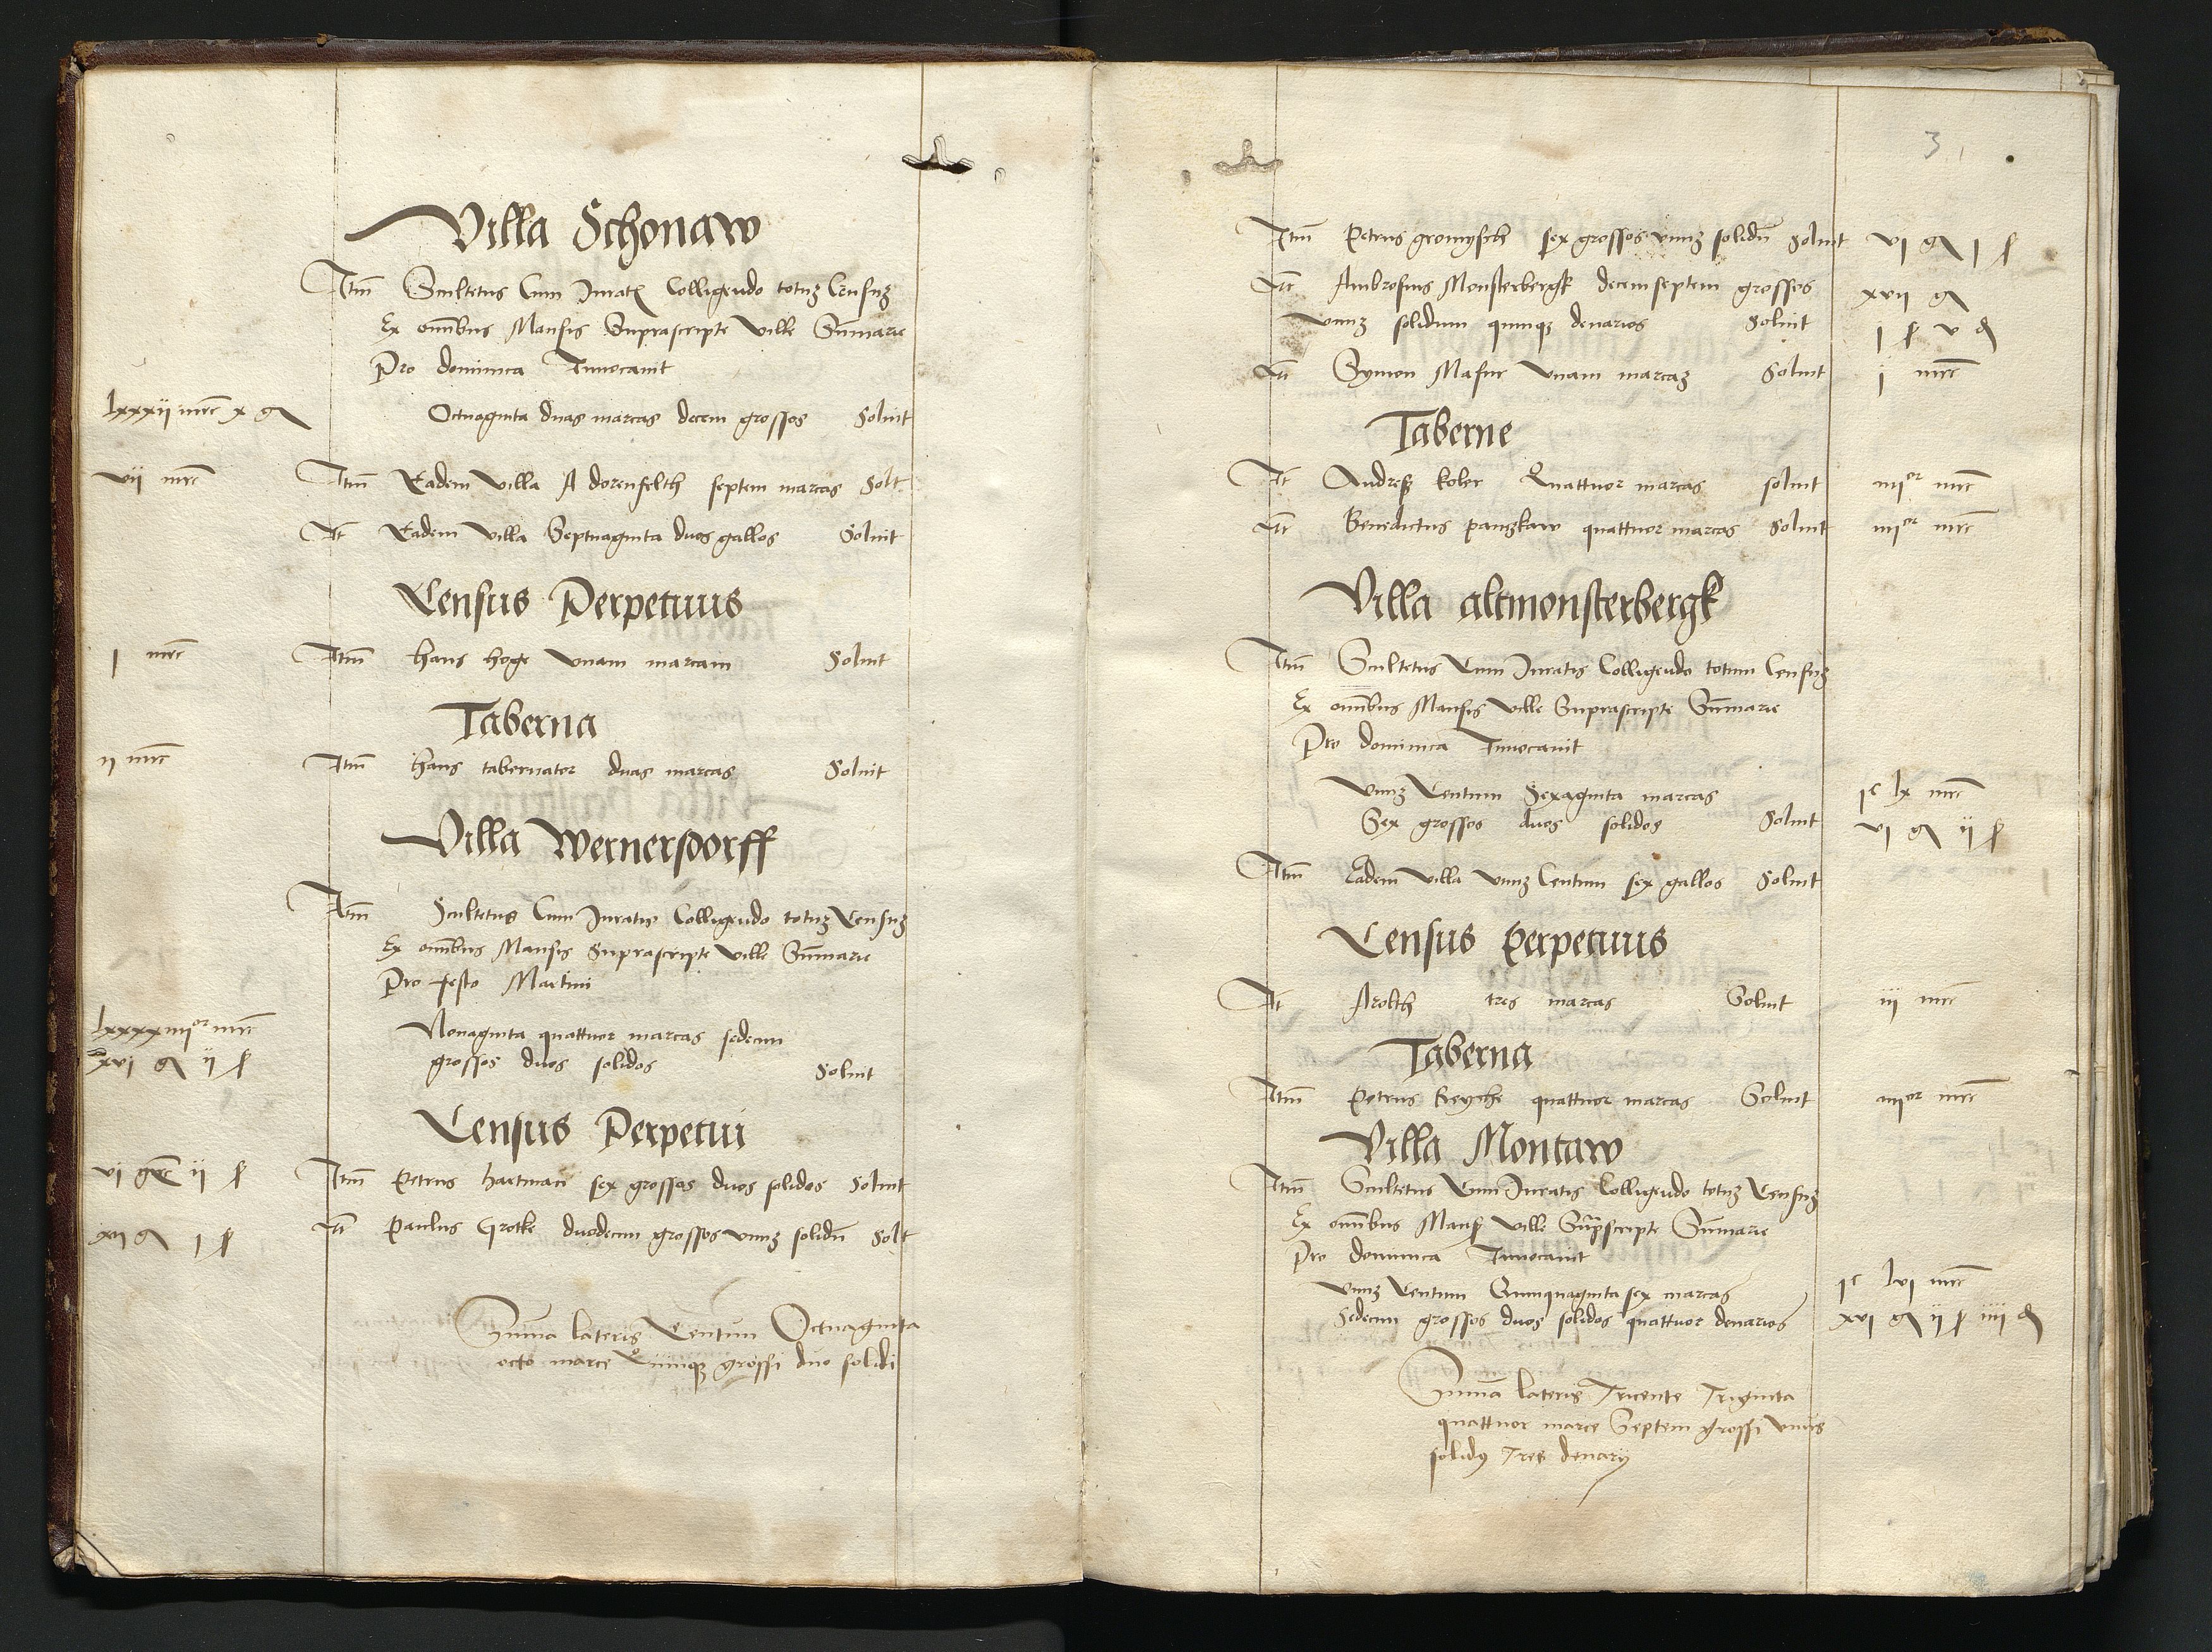 Villa Schonaw
Itm̄ Scultetus Cum Iuratꝭ Colligendo totuʒ Censuʒ
Ex om̄ibus Mansis Suprascripte Ville Sūmarie
Pro dominica Inuocauit
lxxxii mrc x g
Octuaginta duas marcas decem grossos Soluit
vii mrc Itm̄ Eadem Villa A dorenfelth septem marcas Solt
It Eadem Villa Septuaginta duos gallos Soluit
Census Perpetuus
j mrc Itm̄ hans hoge Vnam marcam Soluit
Taberna
ij mrc Itm̄ hans tabernator duas marcas Soluit
Villa Wernersdorff
Itm̄ Scultetus Cum Iuratis Colligendo totuʒ Censuʒ
Ex om̄ibus Mansis Suprascripte Ville Sūmarie
Pro festo Martini
lxxxxiiijor mrc Nonaginta quattuor marcas sedecim
xvj g ij ſ grossos duos solidos Soluit
Census Perpetui
vj grc ij ſ Itm̄ Petrus hartman sex grossos duos solidos Soluit
xij g j ſ It Paulus Grotke duodecim grossos vnuʒ solidū Solt
Sūma lateris Centum Octuaginta
octo marce Quinqʒ grossi duo solidi
3
Itm̄ Petrus gromysch sex grossos vnuʒ solidū Soluit vj g j ſ
Itē Ambrosius Monsterbergk decemseptem grossos xvij g
Vnuʒ solidum quinqʒ denarios Soluit j ſ v d
Itē Symon Masur Vnam marcaʒ Soluit j mrc
Taberne
It Andreß koler Quattuor marcas soluit iiijor mrc
Itē Benedictus panʒkaw quattuor marcas Soluit iiijor mrc
Villa altmonsterbergk
Itm̄ Scultetus Cum Iuratis Colligendo totum Censuʒ
Ex om̄ibus Mansis Ville Suprascripte Sūmarie
Pro dominica Inuocauit
Vnuʒ Centum Sexaginta marcas jc lx mrc
Sex grossos duos solidos Soluit vj g ij ſ
Itm̄ Eadem Villa Vnuʒ Centum sex gallos Soluit
Census Perpetuus
It Arolth tres marcas Soluit iij mrc
Taberna
Itm̄ Petrus Reyche quattuor marcas Soluit iiijor mrc
Villa Montaw
Itm̄ Scultetus Cum Iuratis Colligendo totuʒ Censuʒ
Ex om̄ibus Mansꝭ Ville Sup̄scripte Sūmarie
Pro dominica Inuocauit
Vnuʒ Centum Quinquaginta sex marcas jc lvj mrc
Sedecim grossos duos solidos quattuor denarios xvj g ij ſ iiij d
Sūma lateris Tricente Triginta
quattuor marce Septem grossi vnus
solidꝰ Tres denarij